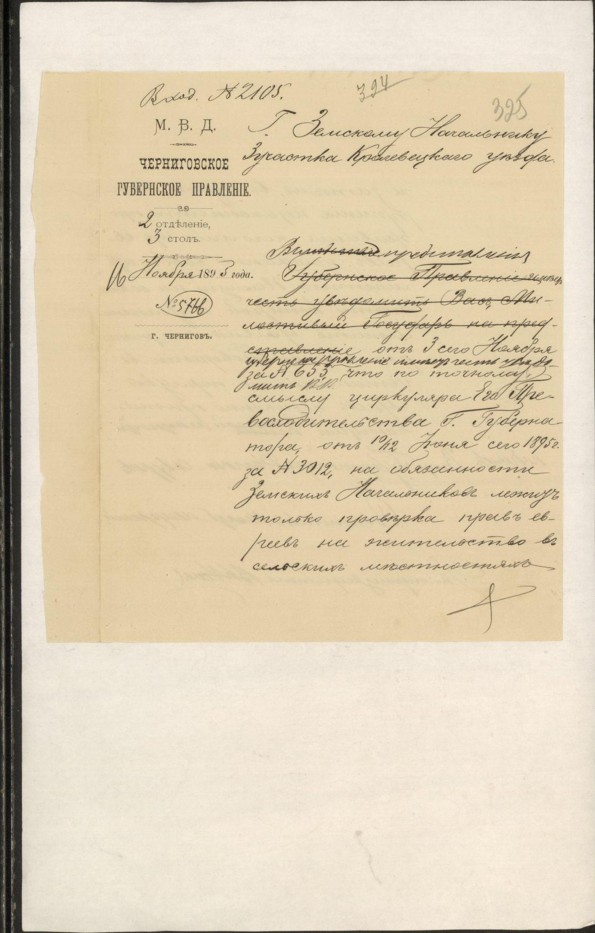 Вход. № 2105.
394
395
М. В. Д.
ЧЕРНИГОВСКОЕ
ГУБЕРНСКОЕ ПРАВЛЕНІЕ.
2 отдѣленіе,
3 столъ.
16 Ноября 1895 года.
№ 5766
Г. ЧЕРНИГОВЪ.
Г. Земскому Начальнику
3 участка Кролевецкаго уѣзда.
Губернское Правленіе имѣетъ
честь увѣдомить Васъ, Ми-
лостивый Государь на пред-
ставленіе отъ 3 сего Ноября
за № 653, что по точному
смыслу циркуляра Его Пре-
восходительства Г. Губерна-
тора, отъ 10/12 Іюня сего 1895 г.
за № 3012, на обязанности
Земскихъ Начальниковъ лежитъ
только провѣрка правъ ев-
реевъ на жительство въ
сельскихъ мѣстностяхъ